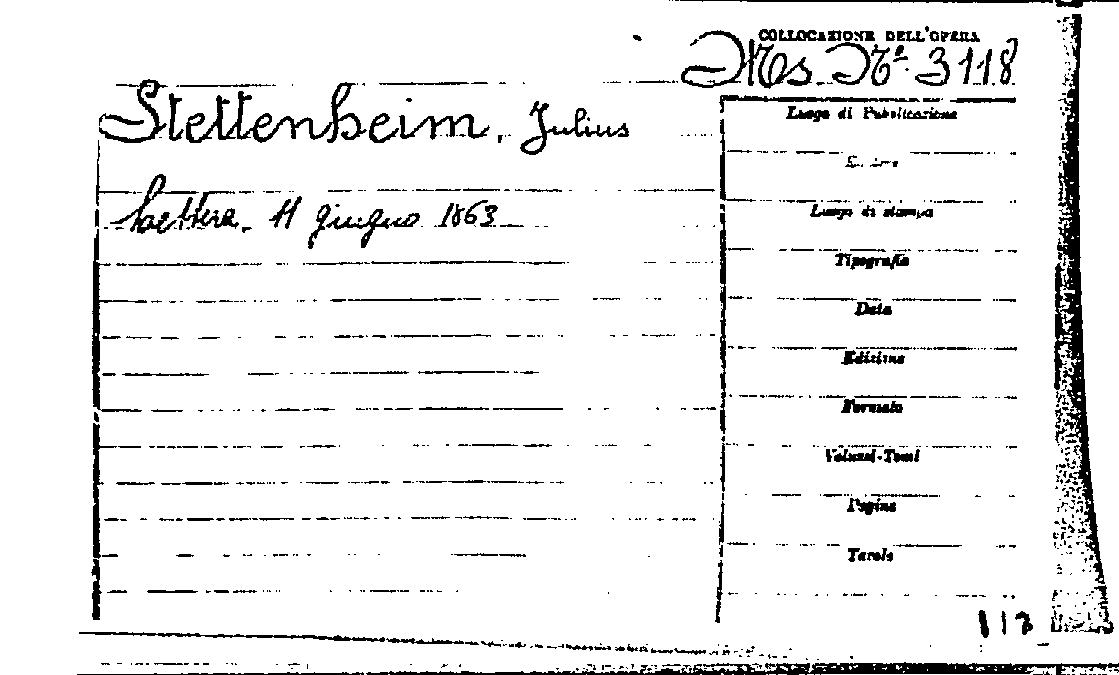 COLLOCAZIONE DELL'OPERA
Ms. Nº. 3118
Stettenheim, Julius
Lettera. 11 giugno 1863
Luogo di Pubblicazione
Luogo di stampa
Tipografia
Data
Edizione
Formato
Volumi-Tomi
Pagine
Tavole